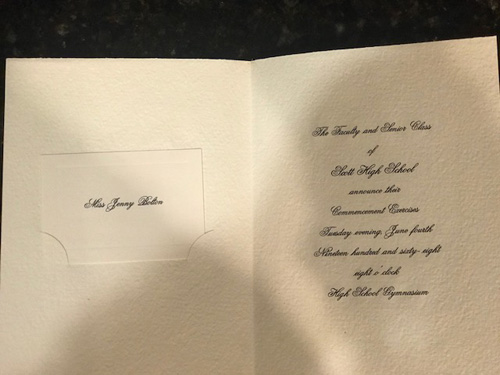 Miss Jenny Bolton
The Faculty and Senior Class
of
Scott High School
announce their
Commencement Exercises
Tuesday evening, June fourth
Nineteen hundred and sixty-eight
eight o'clock
High School Gymnasium